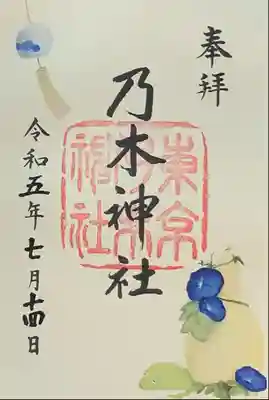 奉拝
乃木神社
東京乃木神社
令和五年七月十四日